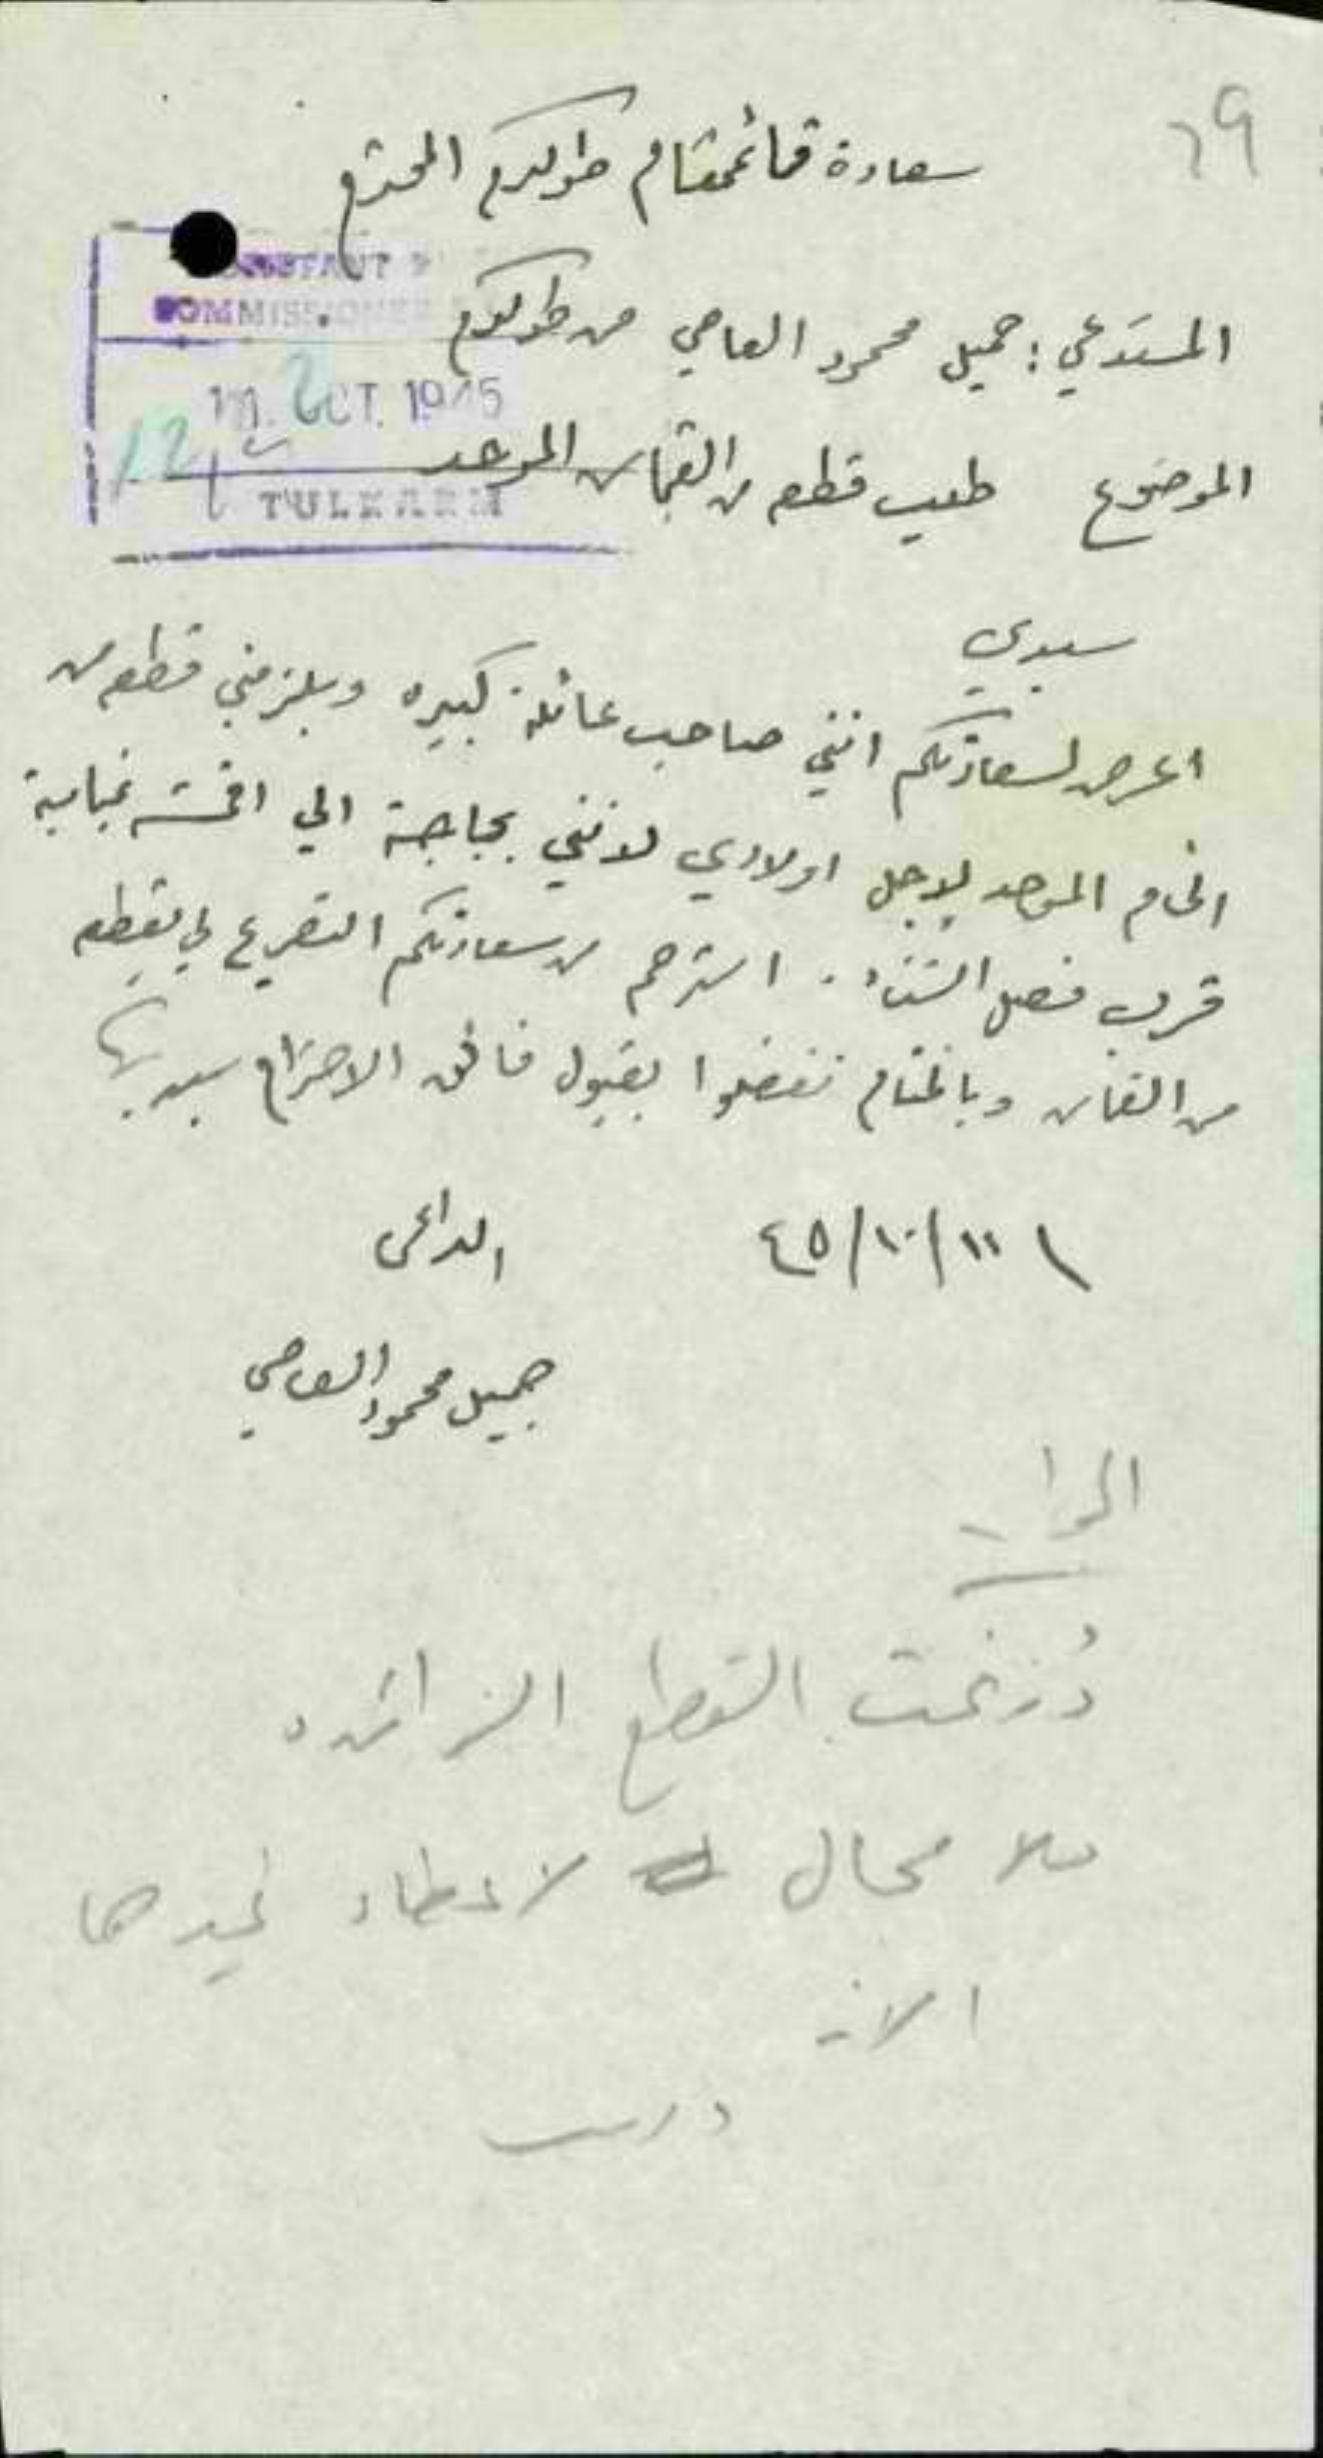 ٦٩
سعادة قائمقام طولكرم المحترم
COMMISSIONER
OCT. 1945
12
TULKARM
المستدعي : جميل محمود العاصي من طولكرم
الموضوع طلب قطعه من القماش الموحد
سيدي
اعرض لسعادتكم انني صاحب عائلة كبيره ويلزمني قطعه من
الخام الموحد لاجل اولادي لانني بحاجة الى اقمشه نيابية
قرب فصل الشتاء . استرحم من سعادتكم التصريح لي بقطعه
من القماش وبالختام تفضلوا بقبول فائق الاحترام سيدي
٤٥/١٠/١١
الداعي
جميل محمود العاصي
الجواب
وُزعت القطع الزائده
ولا مجال لاعطاء غيرها
الان